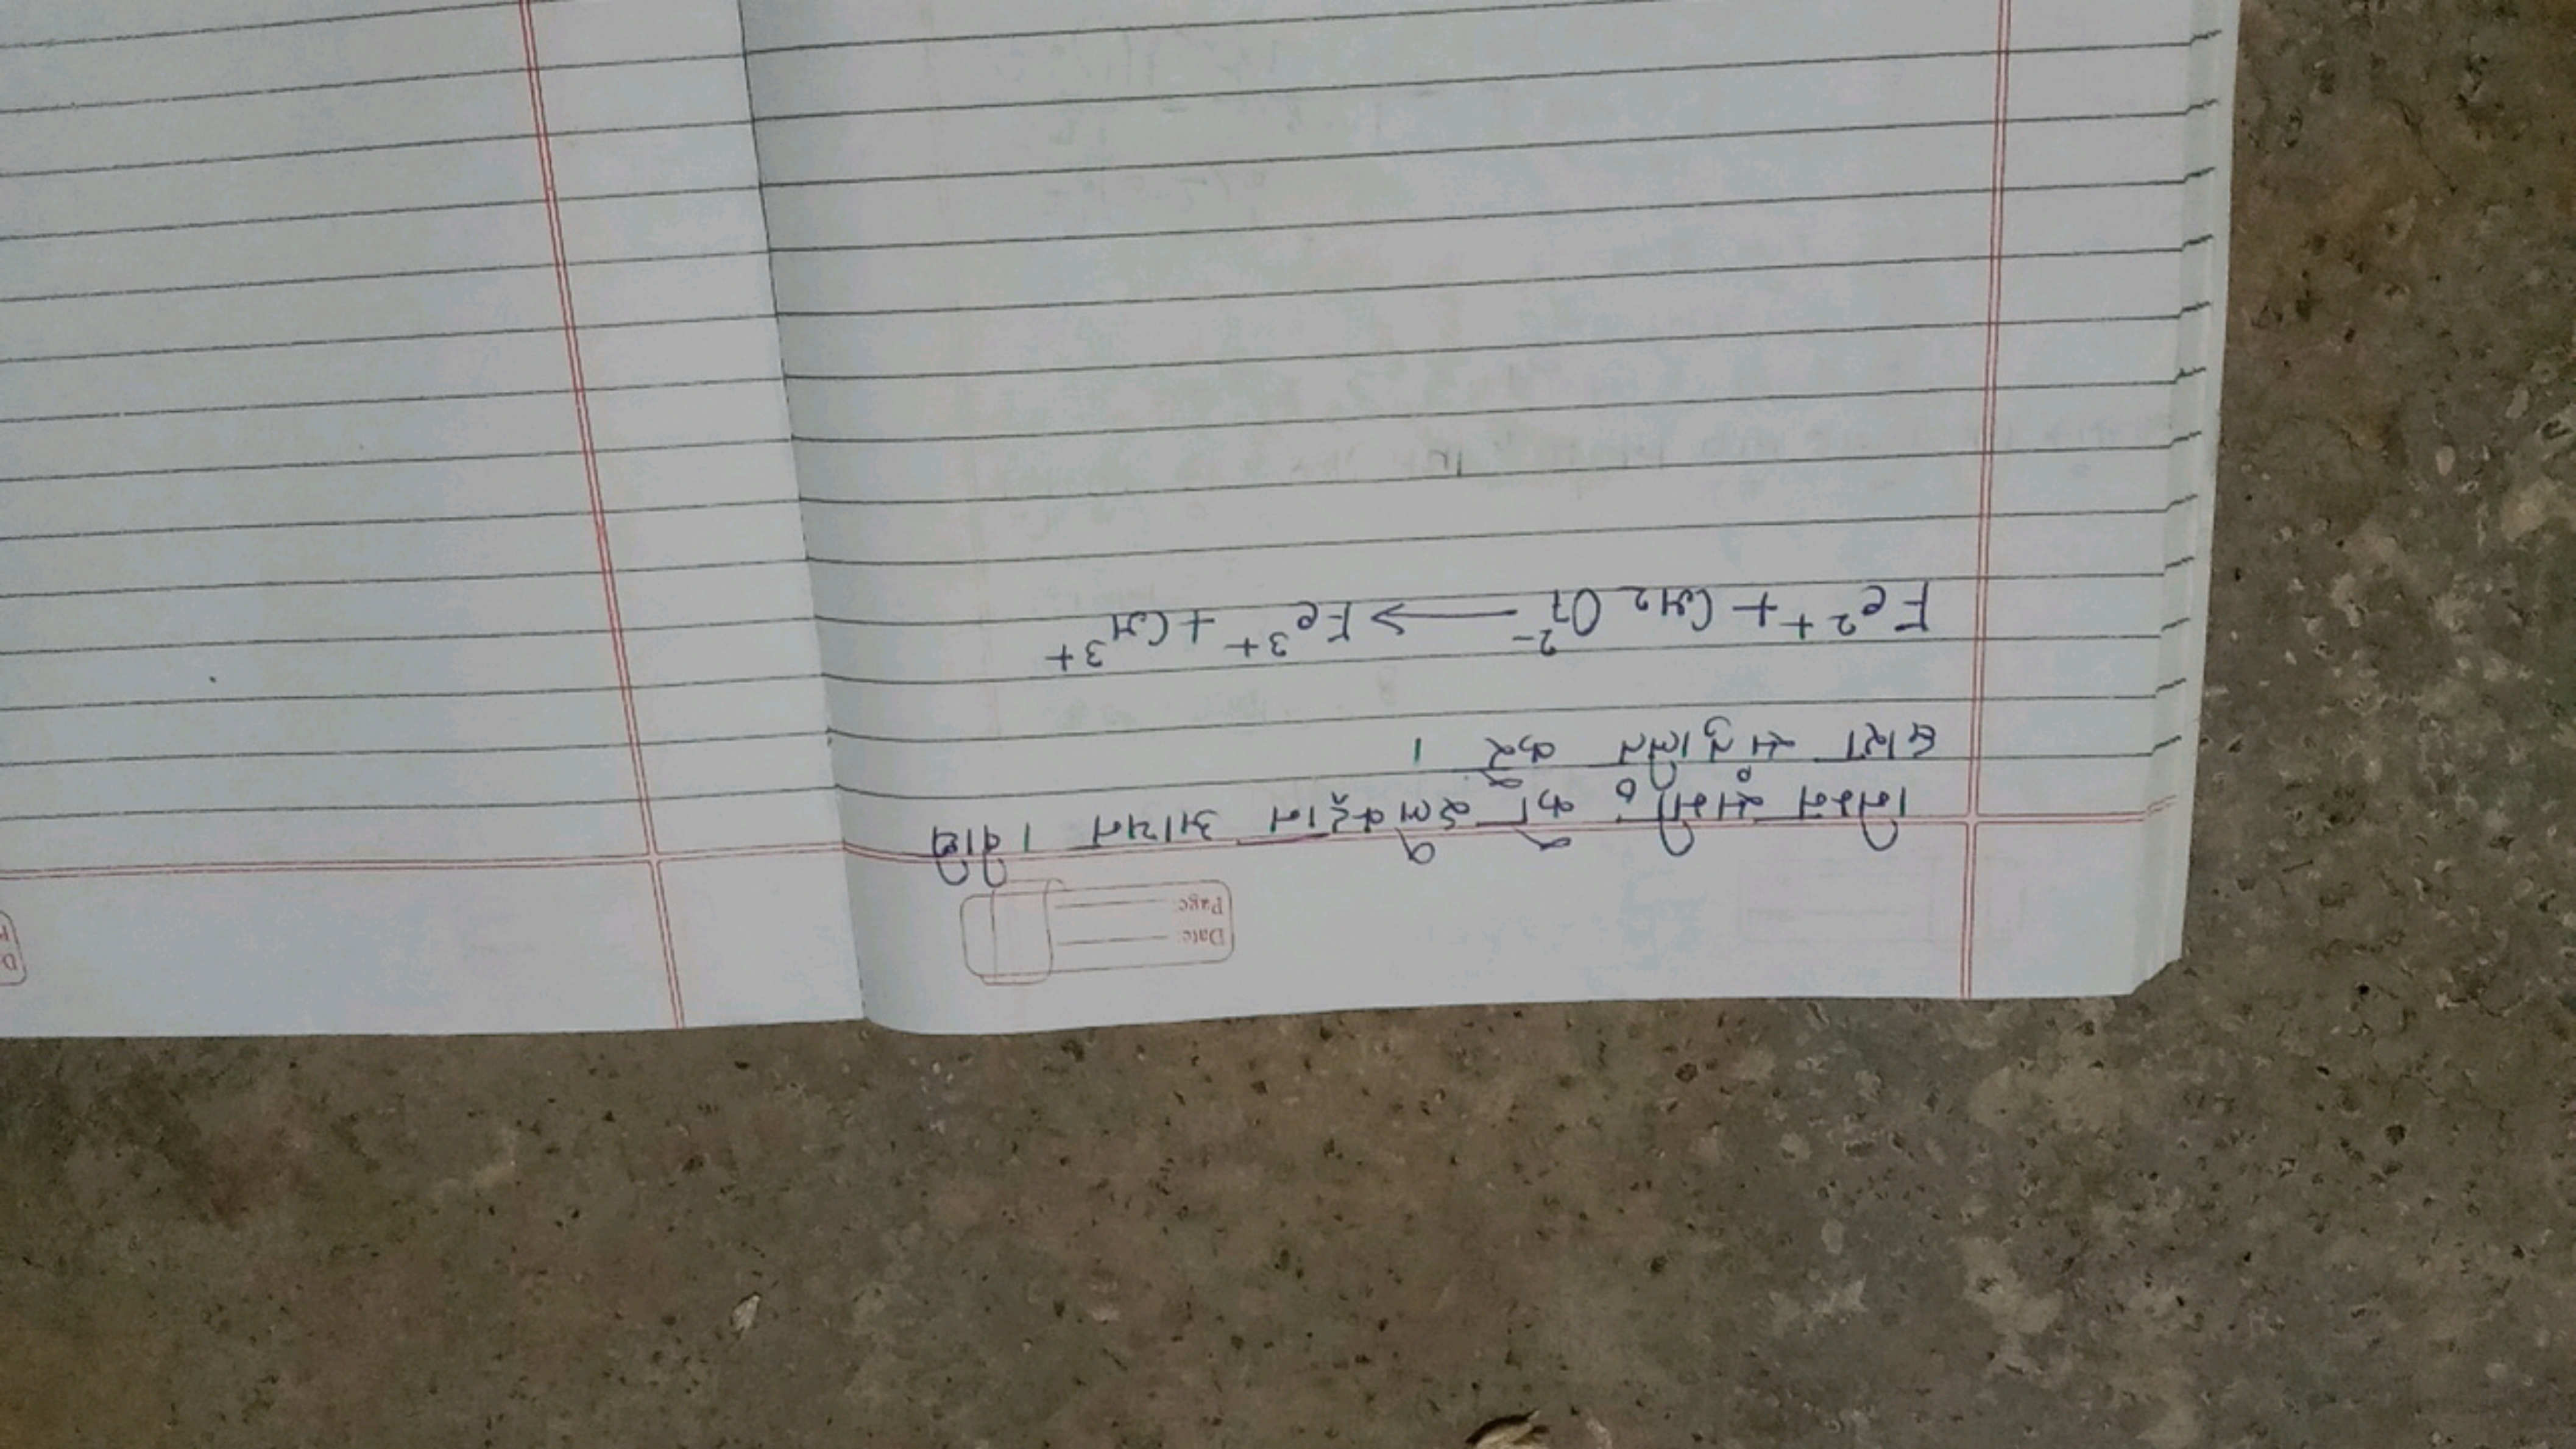 Date
Page
निम्न समीo को इलेक्ट्रान आयन विधि
द्वारा संतुलित करे ।
Fe²⁺ + Cr₂O₇²⁻ ⟶ Fe³⁺ + Cr³⁺